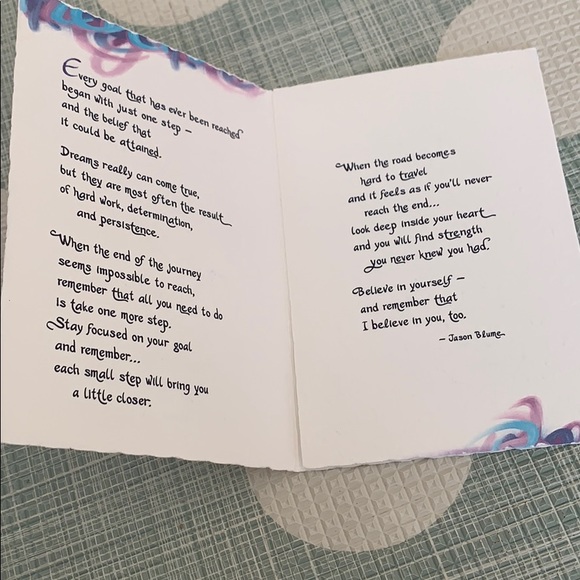 Every goal that has ever been reached
began with just one step –
and the belief that
it could be attained.
Dreams really can come true,
but they are most often the result
of hard work, determination,
and persistence.
When the end of the journey
seems impossible to reach,
remember that all you need to do
is take one more step.
Stay focused on your goal
and remember...
each small step will bring you
a little closer.
When the road becomes
hard to travel
and it feels as if you'll never
reach the end...
look deep inside your heart
and you will find strength
you never knew you had.
Believe in yourself –
and remember that
I believe in you, too.
– Jason Blume